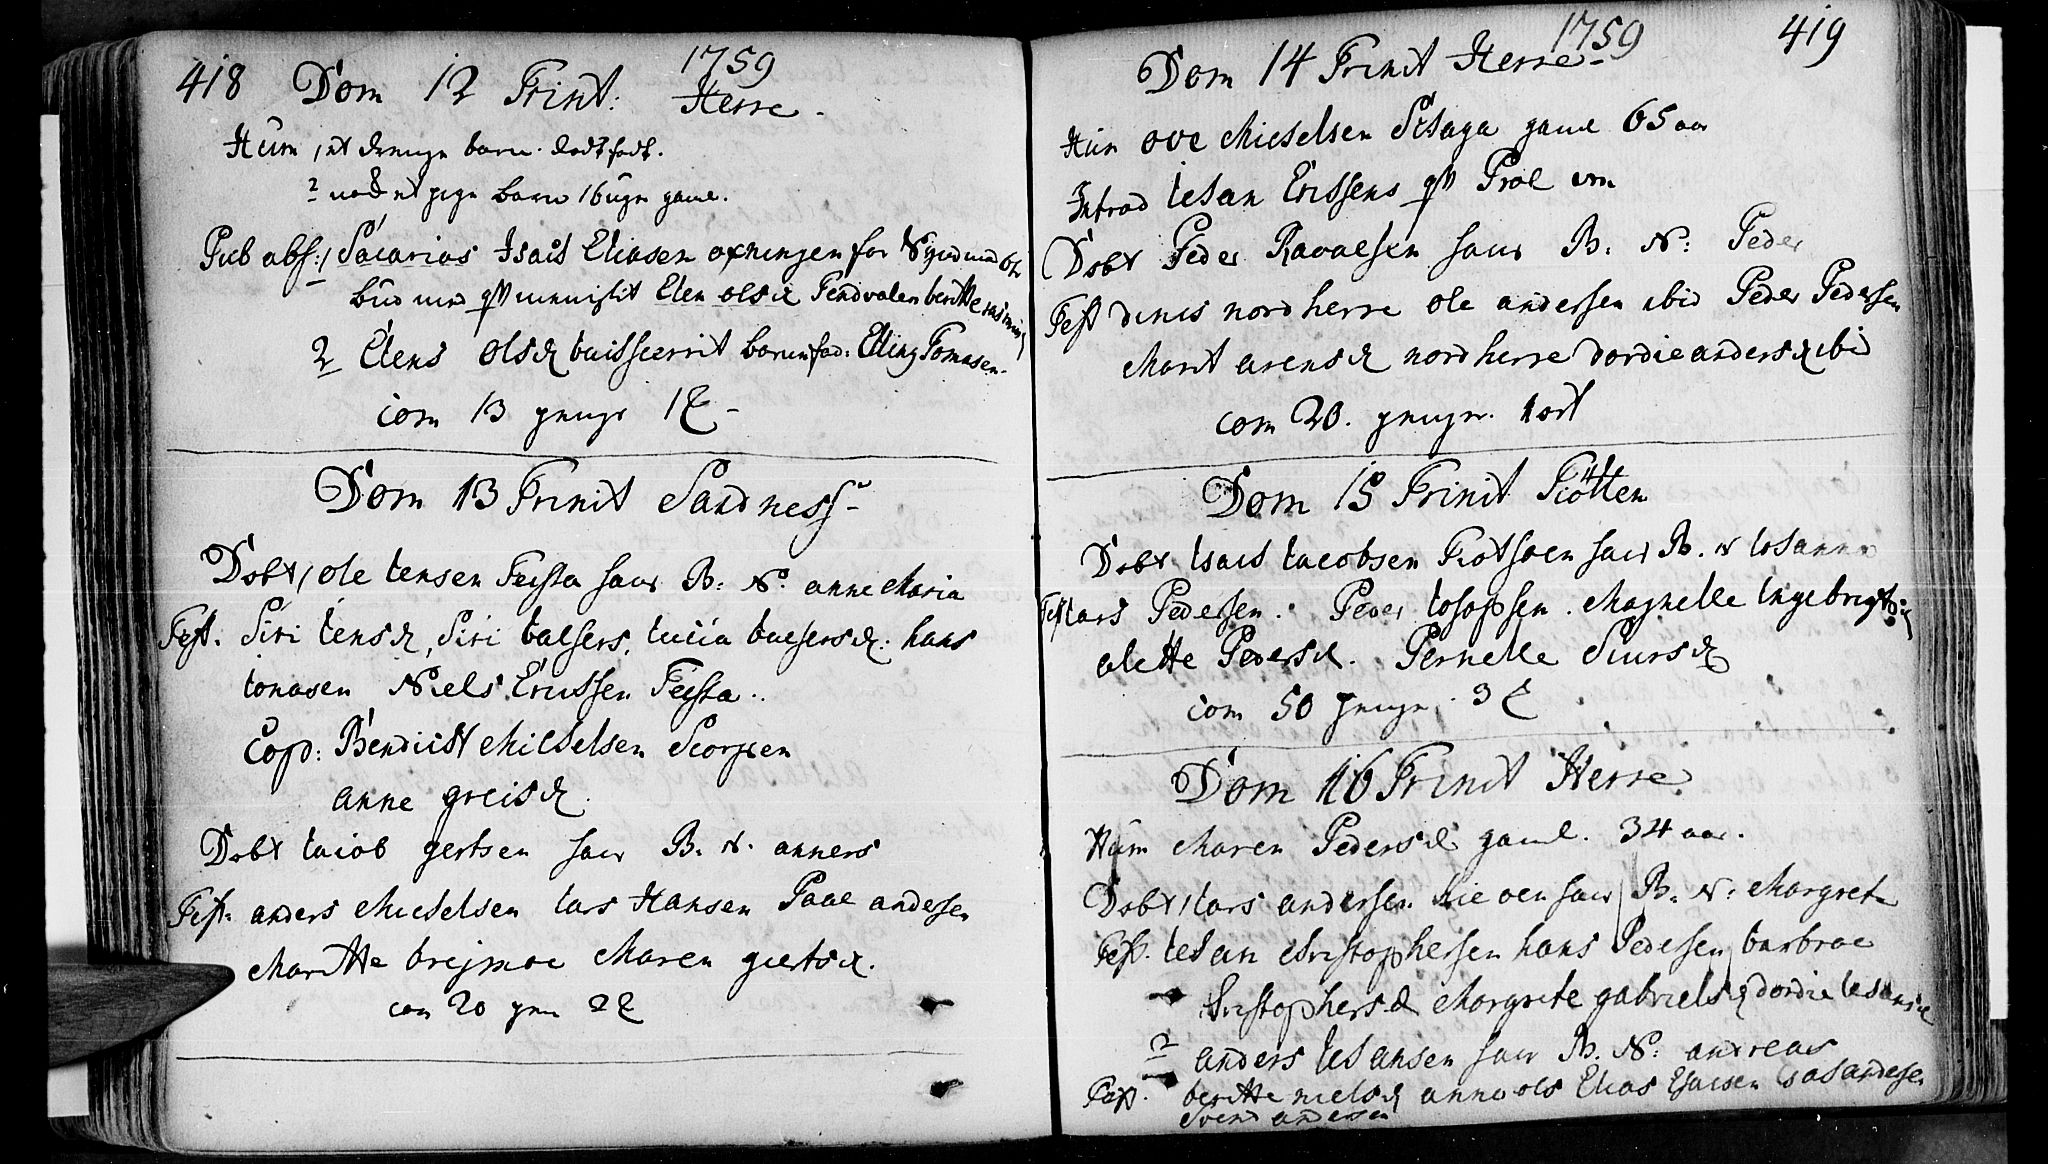 418 Dom 12 Trint: 1759
Herre -
Hum 1, et drenge barn. dødfødt.
2 nok et pige barn 16 ugr gaml.
Pub abs: 1 Sacarias Isach Eliasen
bud Elen olsd Tendvalen beritte
2 Elens olsd barnefad: Eling Tomasen.
com 13 penge 1
Dom 13 Trinit Sandness -
Dobt 1 ole Iensen Feista haus B: N: anne Maria
Test. Siri Iensd, Siri balsers, Lucia balsersd. hans
Ionasen Niels Ericssen Feista.
Cop: Bendict Michelsen Scorpen
anne greisd.
Dobt Iacob gertsen haus B. N. anners
Test: anders Michelsen Lars Hansen Paal andersen
Maritte brejmoe Maren giertsd.
com 20 pen 2
Dom 14 Trinit Herre - 1759 419
Hum ove Michelsen gaml 65 aar
Introd Iohan Ericsens
Dobt Peder haus B: N: Peder
Test nord herre ole andersen ibid Peder Pedersen
Marit arensd nordherre dordie andersd ibid
com 20. penge. 1 ort
Dom 15 Trinit Tiøtten
Dobt Isach Iacobsen haus B. N Iohanna
Test Lars Pedersen. Peder Iosopsen. Magnelle Ingebrigtsd
alette Pedersd. Pernelle Siursd
com 50 penge. 3
Dom 16 Trinit Herre
Hum Maren Pedersd gaml. 34 aar.
Dobt 1 Lars andersen haus B. N: Margrete
Test. Iohan Christophersen hans Pedersen barbroe
Christophersd Margrete gabrielsd dordie Iohansd
2 anders Iohansen haus B. N: andreas
Test. beritte nielsd anne ols Elias Esaisen
Svend andersen